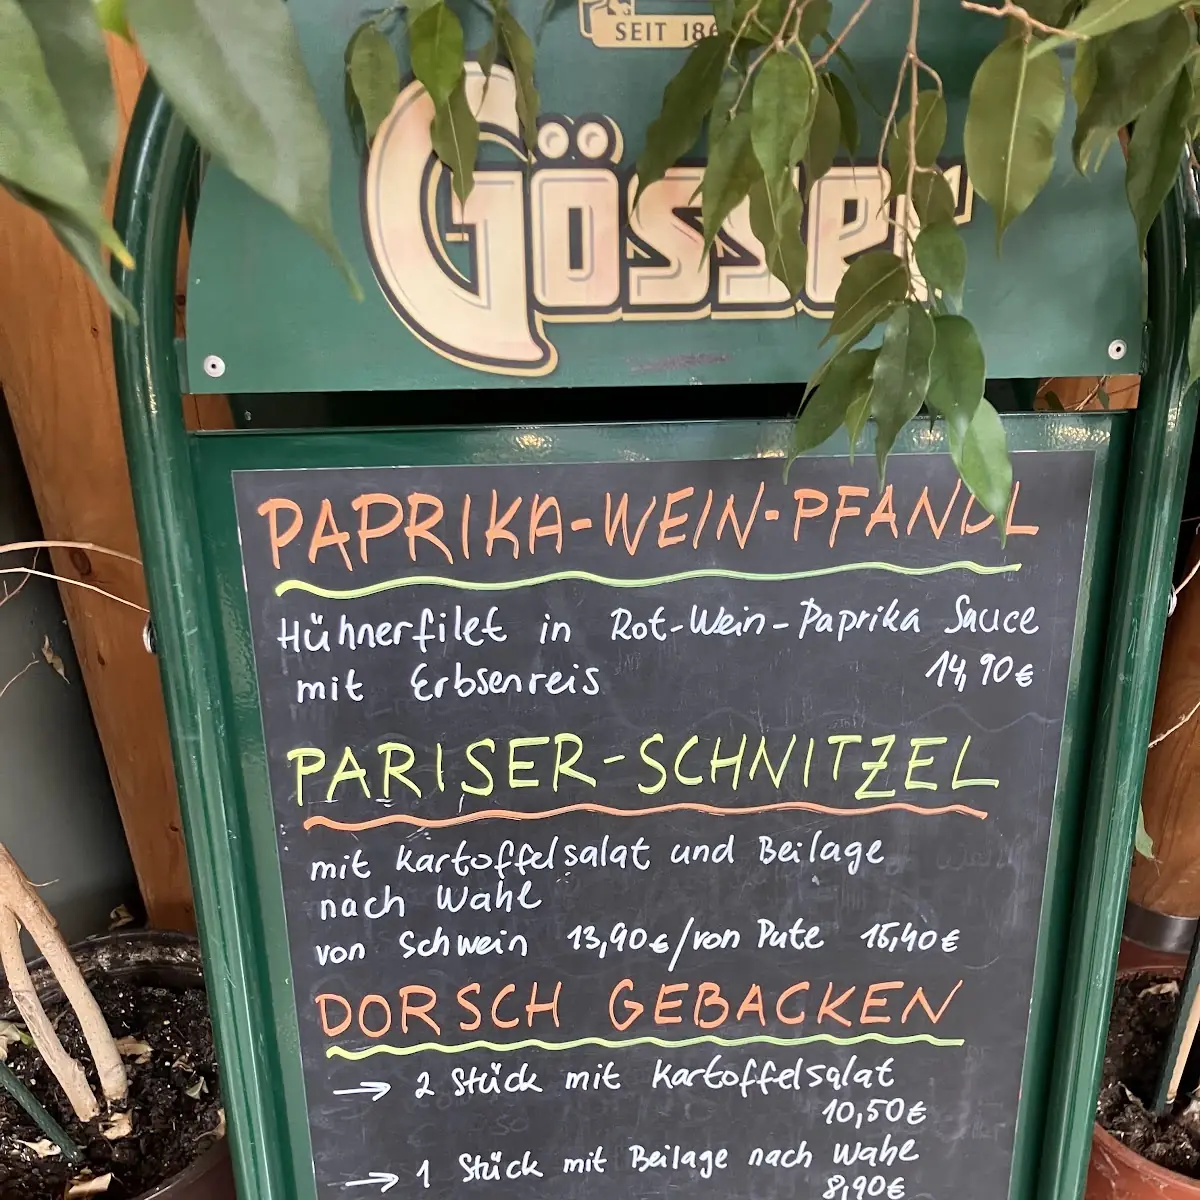 SEIT 186
Gösser
PAPRIKA-WEIN-PFANDL
Hühnerfilet in Rot-Wein-Paprika Sauce
mit Erbsenreis 14,90€
PARISER-SCHNITZEL
mit Kartoffelsalat und Beilage
nach Wahl
von Schwein 13,90€/von Pute 15,40€
DORSCH GEBACKEN
→ 2 Stück mit Kartoffelsalat
10,50€
→ 1 Stück mit Beilage nach Wahl
8,90€